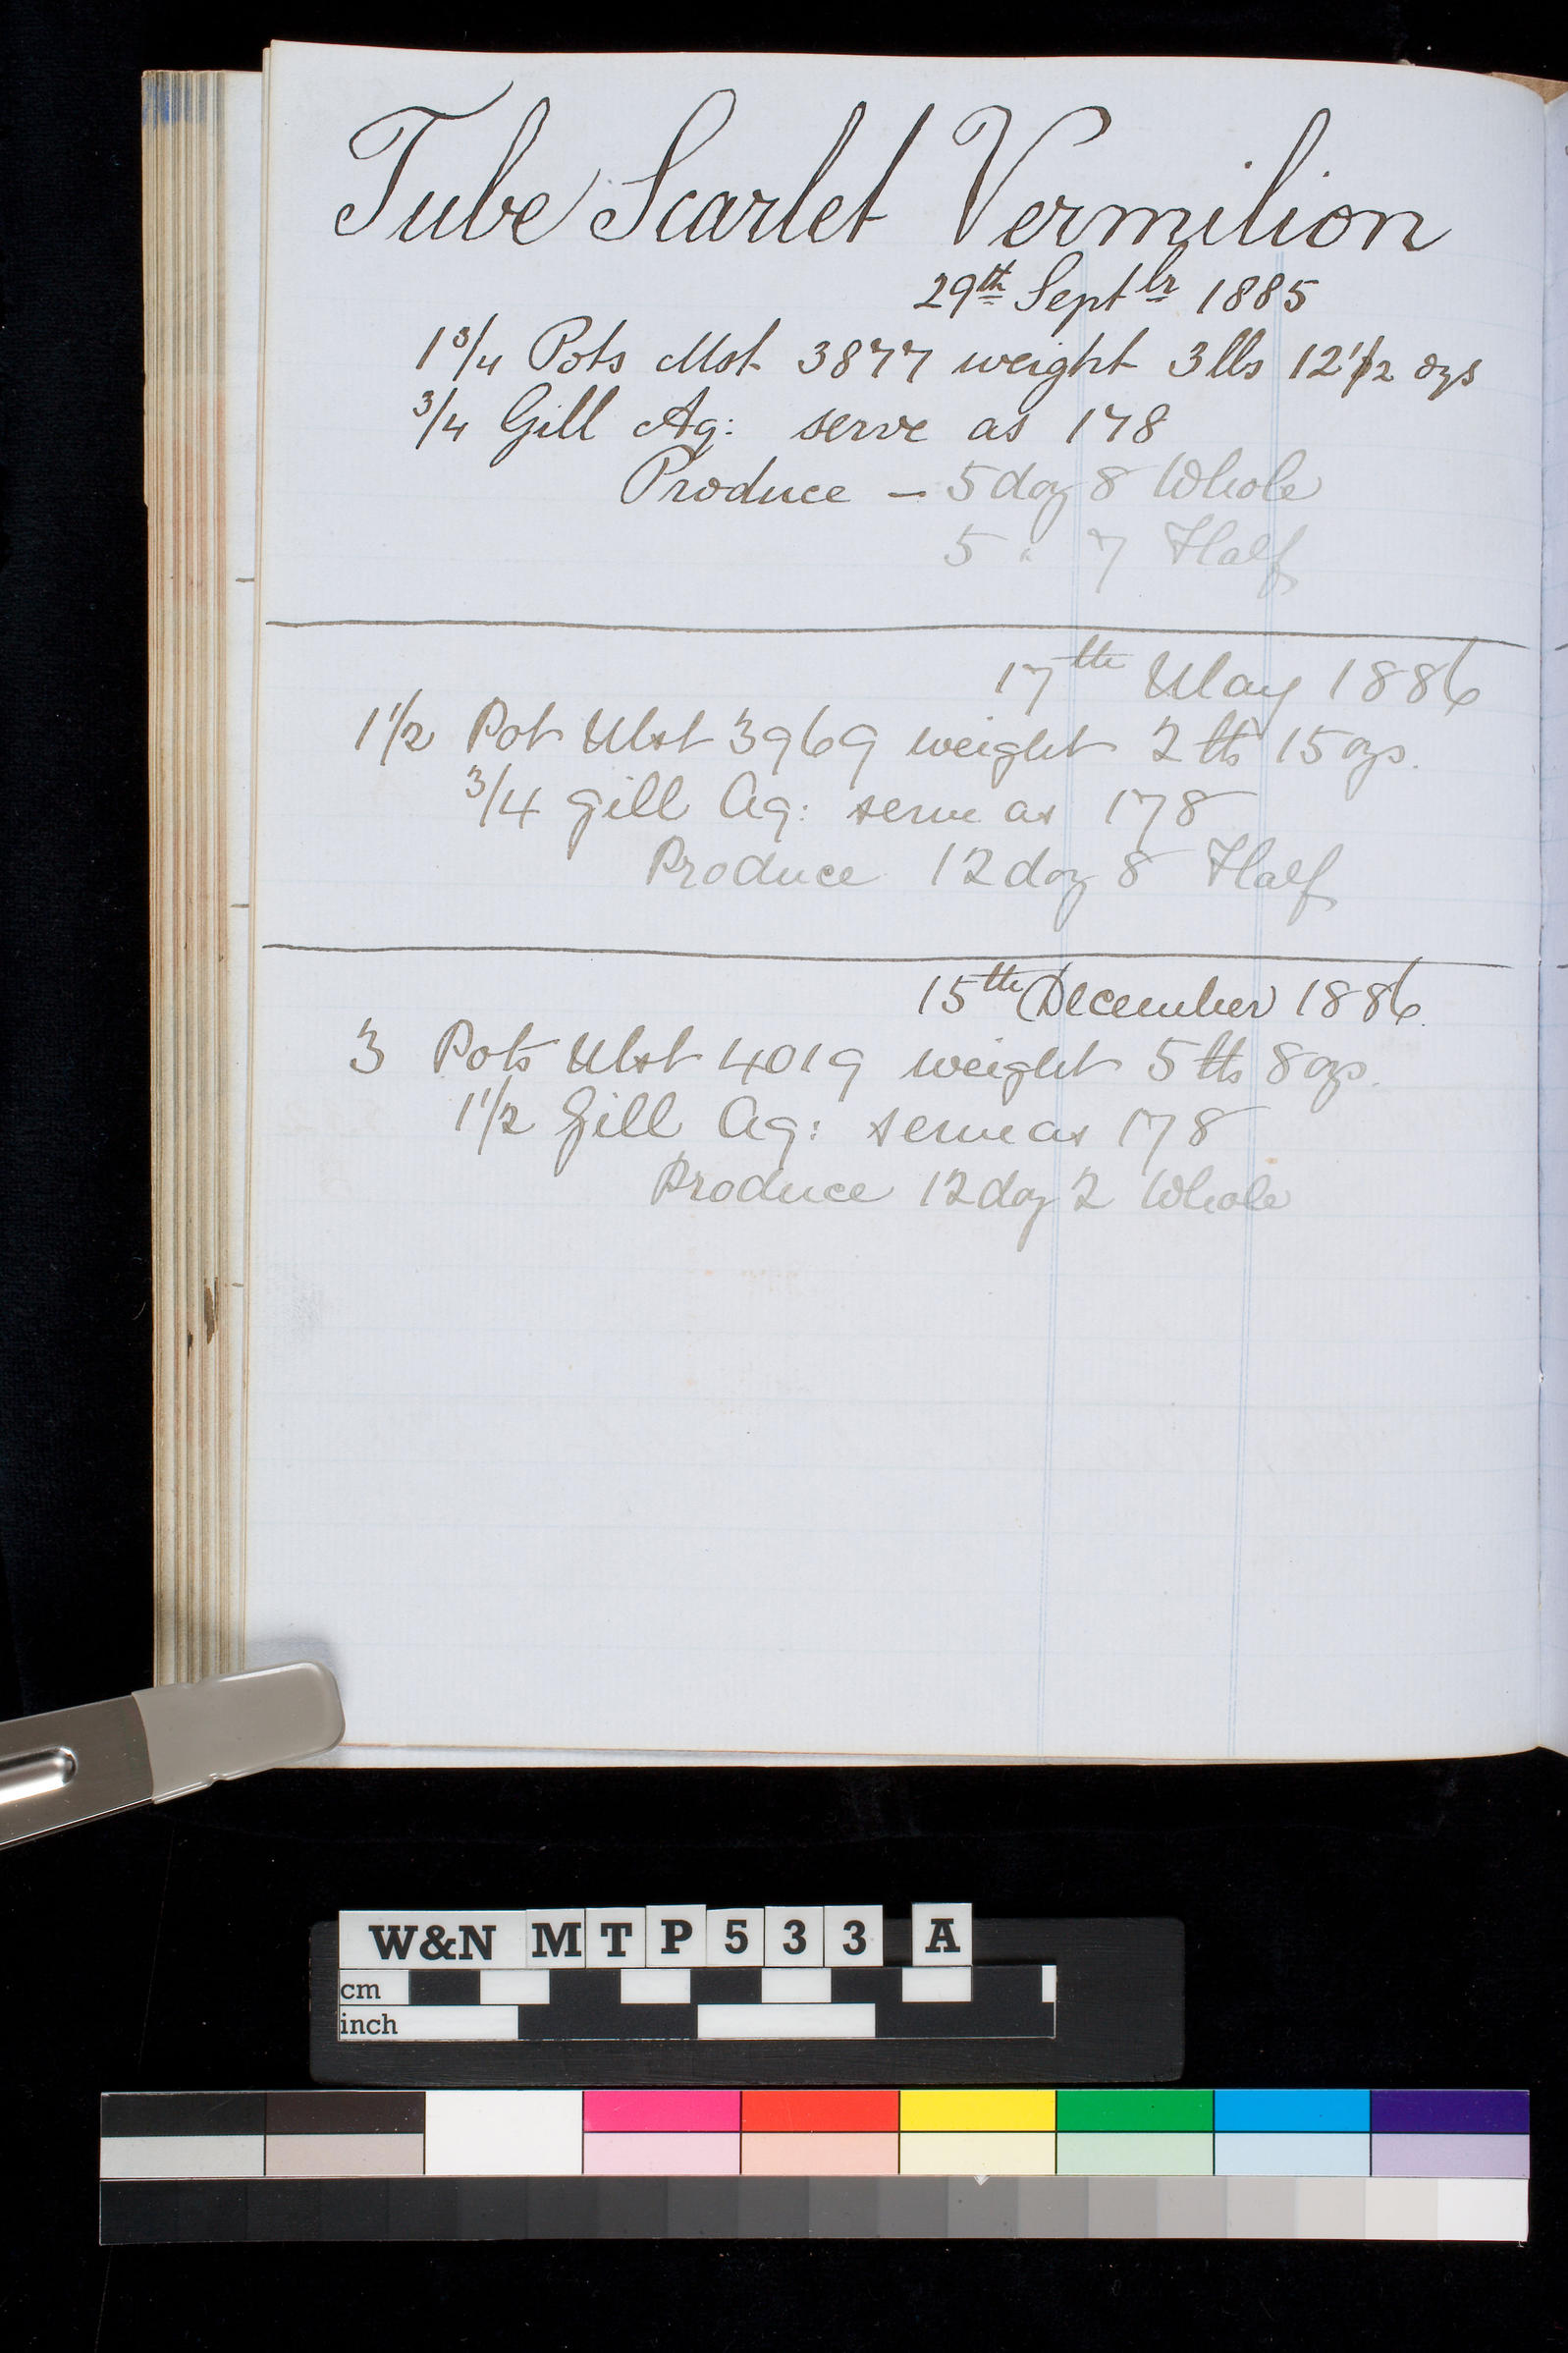 Tube Scarlet Vermilion
29th Septbr 1885
1 3/4 Pots Mst 3877 weight 3 lbs 12 1/2 ozs
3/4 Gill Aq: serve as 178
Produce — 5 doz 8 Whole
5 " 7 Half
17th May 1886
1 1/2 Pot Mst 3969 weight 2 lbs 15 ozs.
3/4 gill Aq: serve as 178
Produce 12 doz 8 Half
15th December 1886.
3 Pots Mst 4019 weight 5 lbs 8 ozs.
1 1/2 Gill Aq: serve as 178
Produce 12 doz 2 Whole
W&N MTP533 A
cm
inch